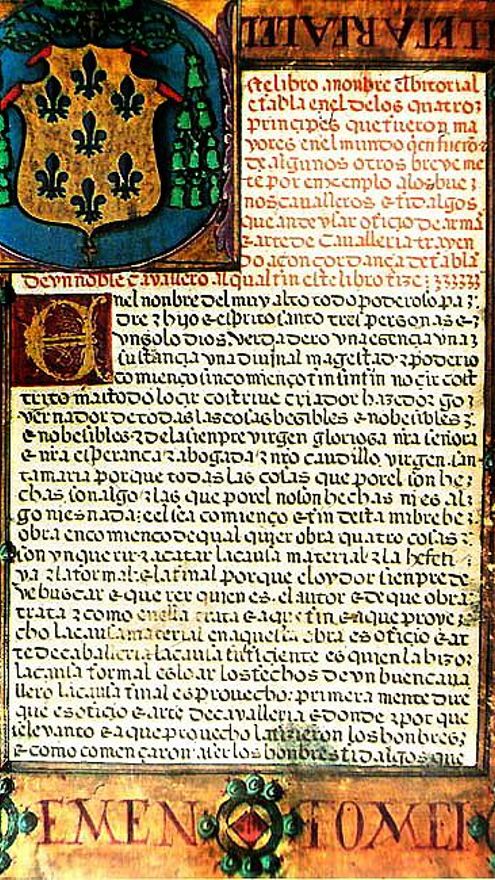 LETAREALEL
este libro anonbre el bitorial
e fabla en el de los quatro
prinçipes que fueron ma
yores en el mundo q en fuero
de algunos otros breve me
te por enxenplo a los bue
nos cavalleros e fidalgos
que an de usar ofiçio de arma
e arte de cavalleria trayen
do a concordança de fabla
de un noble cavallero al qual fin este libro fize
nel nonbre del muy alto todo poderoso pa
dre z hijo e esprito santo tres personas e
un solo dios verdadero una esençia una
sustançia una divinal magestad z poderio
comienço sin comienço z fin sin fin no çir cost
trito mas todo lo çir costrive criador hazedor go
vernador de todas las cosas besibles e no besibles
e nobesibles z de la sienpre virgen gloriosa nra señora
e nra esperança z abogada z nro caudillo virgen san
ta maria por que todas las cosas que por el son he
chas son algo z las que por el no son hechas ni es al
go ni es nada e el sea comienço e fin desta mi bre be
obra en comienço de qual quier obra quatro cosas
son un querir z acatar la causa material z la hefeti
va z la formal e la final porque el oydor sienpre de
ve buscar e querer quien es el autor e de que obra
trata z como en ella trata e a que fin e a que prove
cho la causa material en aquesta obra es ofiçio e ar
te de cavalleria la causa efiçiente es quien la hizo
la causa formal es loar los fechos de un buen cava
llero la causa final es provecho primera mente dire
que es ofiçio e arte de cavalleria e donde z por que
se levanto e a que provecho la fizieron los honbres
e como començaron aver los honbres fidalgos que
EMEN TOMEI